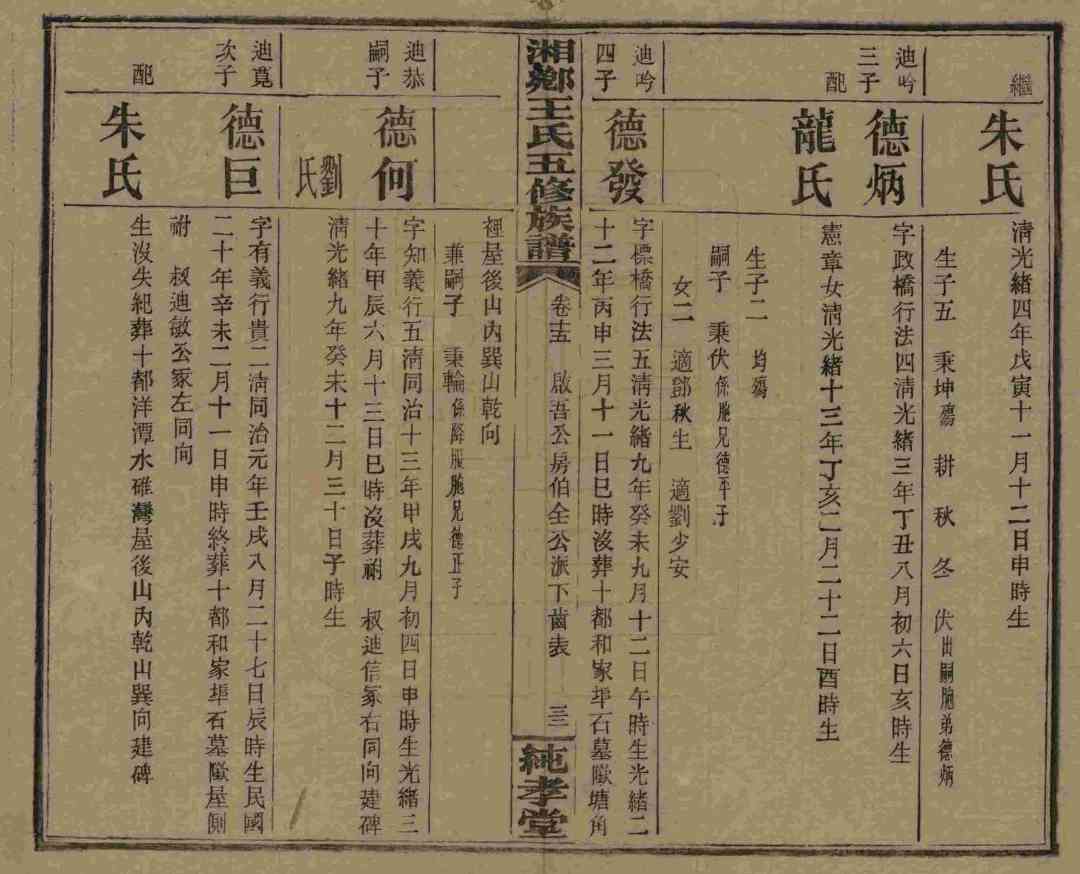 繼
朱氏
清光緒四年戊寅十一月十二日申時生
生子五 秉坤殤 耕 秋 冬 伏出嗣胞弟德炳
迪吟
三子
德炳
字政橋行法四清光緒三年丁丑八月初六日亥時生
配
龍氏
憲章女清光緒十三年丁亥二月二十二日酉時生
生子二 均殤
嗣子 秉伏係胞兄德平子
女二 適鄧秋生 適劉少安
迪吟
四子
德發
字標橋行法五清光緒九年癸未九月十二日午時生光緒二
十二年丙申三月十一日巳時沒葬十都和家埠石墓塘角
湘鄉王氏五修族譜
卷十五 啟吾公房伯全公派下齒表 三三
純孝堂
裡屋後山內巽山乾向
兼嗣子 秉輪係降服胞兄德正子
迪恭
嗣子
德何
字知義行五清同治十三年甲戌九月初四日申時生光緒三
十年甲辰六月十三日巳時沒葬祔 叔迪信冢右同向建碑
劉氏
清光緒九年癸未十二月三十日子時生
迪寬
次子
德巨
字有義行貴二清同治元年壬戌八月二十七日辰時生民國
二十年辛未二月十一日申時終葬十都和家埠石墓屋側
祔 叔迪敏公冢左同向
配
朱氏
生沒失紀葬十都洋潭水碓灣屋後山內乾山巽向建碑